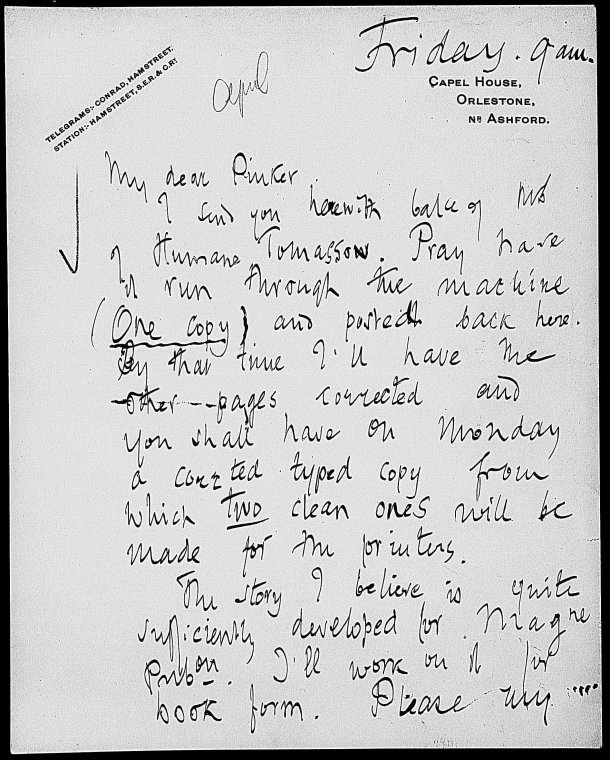 Friday. 9am.
TELEGRAMS:- CONRAD, HAMSTREET.
STATION:- HAMSTREET, S.E.R. & C.RY.
April
CAPEL HOUSE,
ORLESTONE,
NR ASHFORD.
My dear Pinker.
I send you herewith balce of MS
of Humane Tomassow. Pray have
it run through the machine
(One copy) and posted back here.
By that time I'll have the
other pages corrected and
you shall have on Monday
a corrted typed copy from
which two clean ones will be
made for the printers.
The story I believe is quite
sufficiently developed for Magne
Pubon. I'll work on it for
book form. Please my